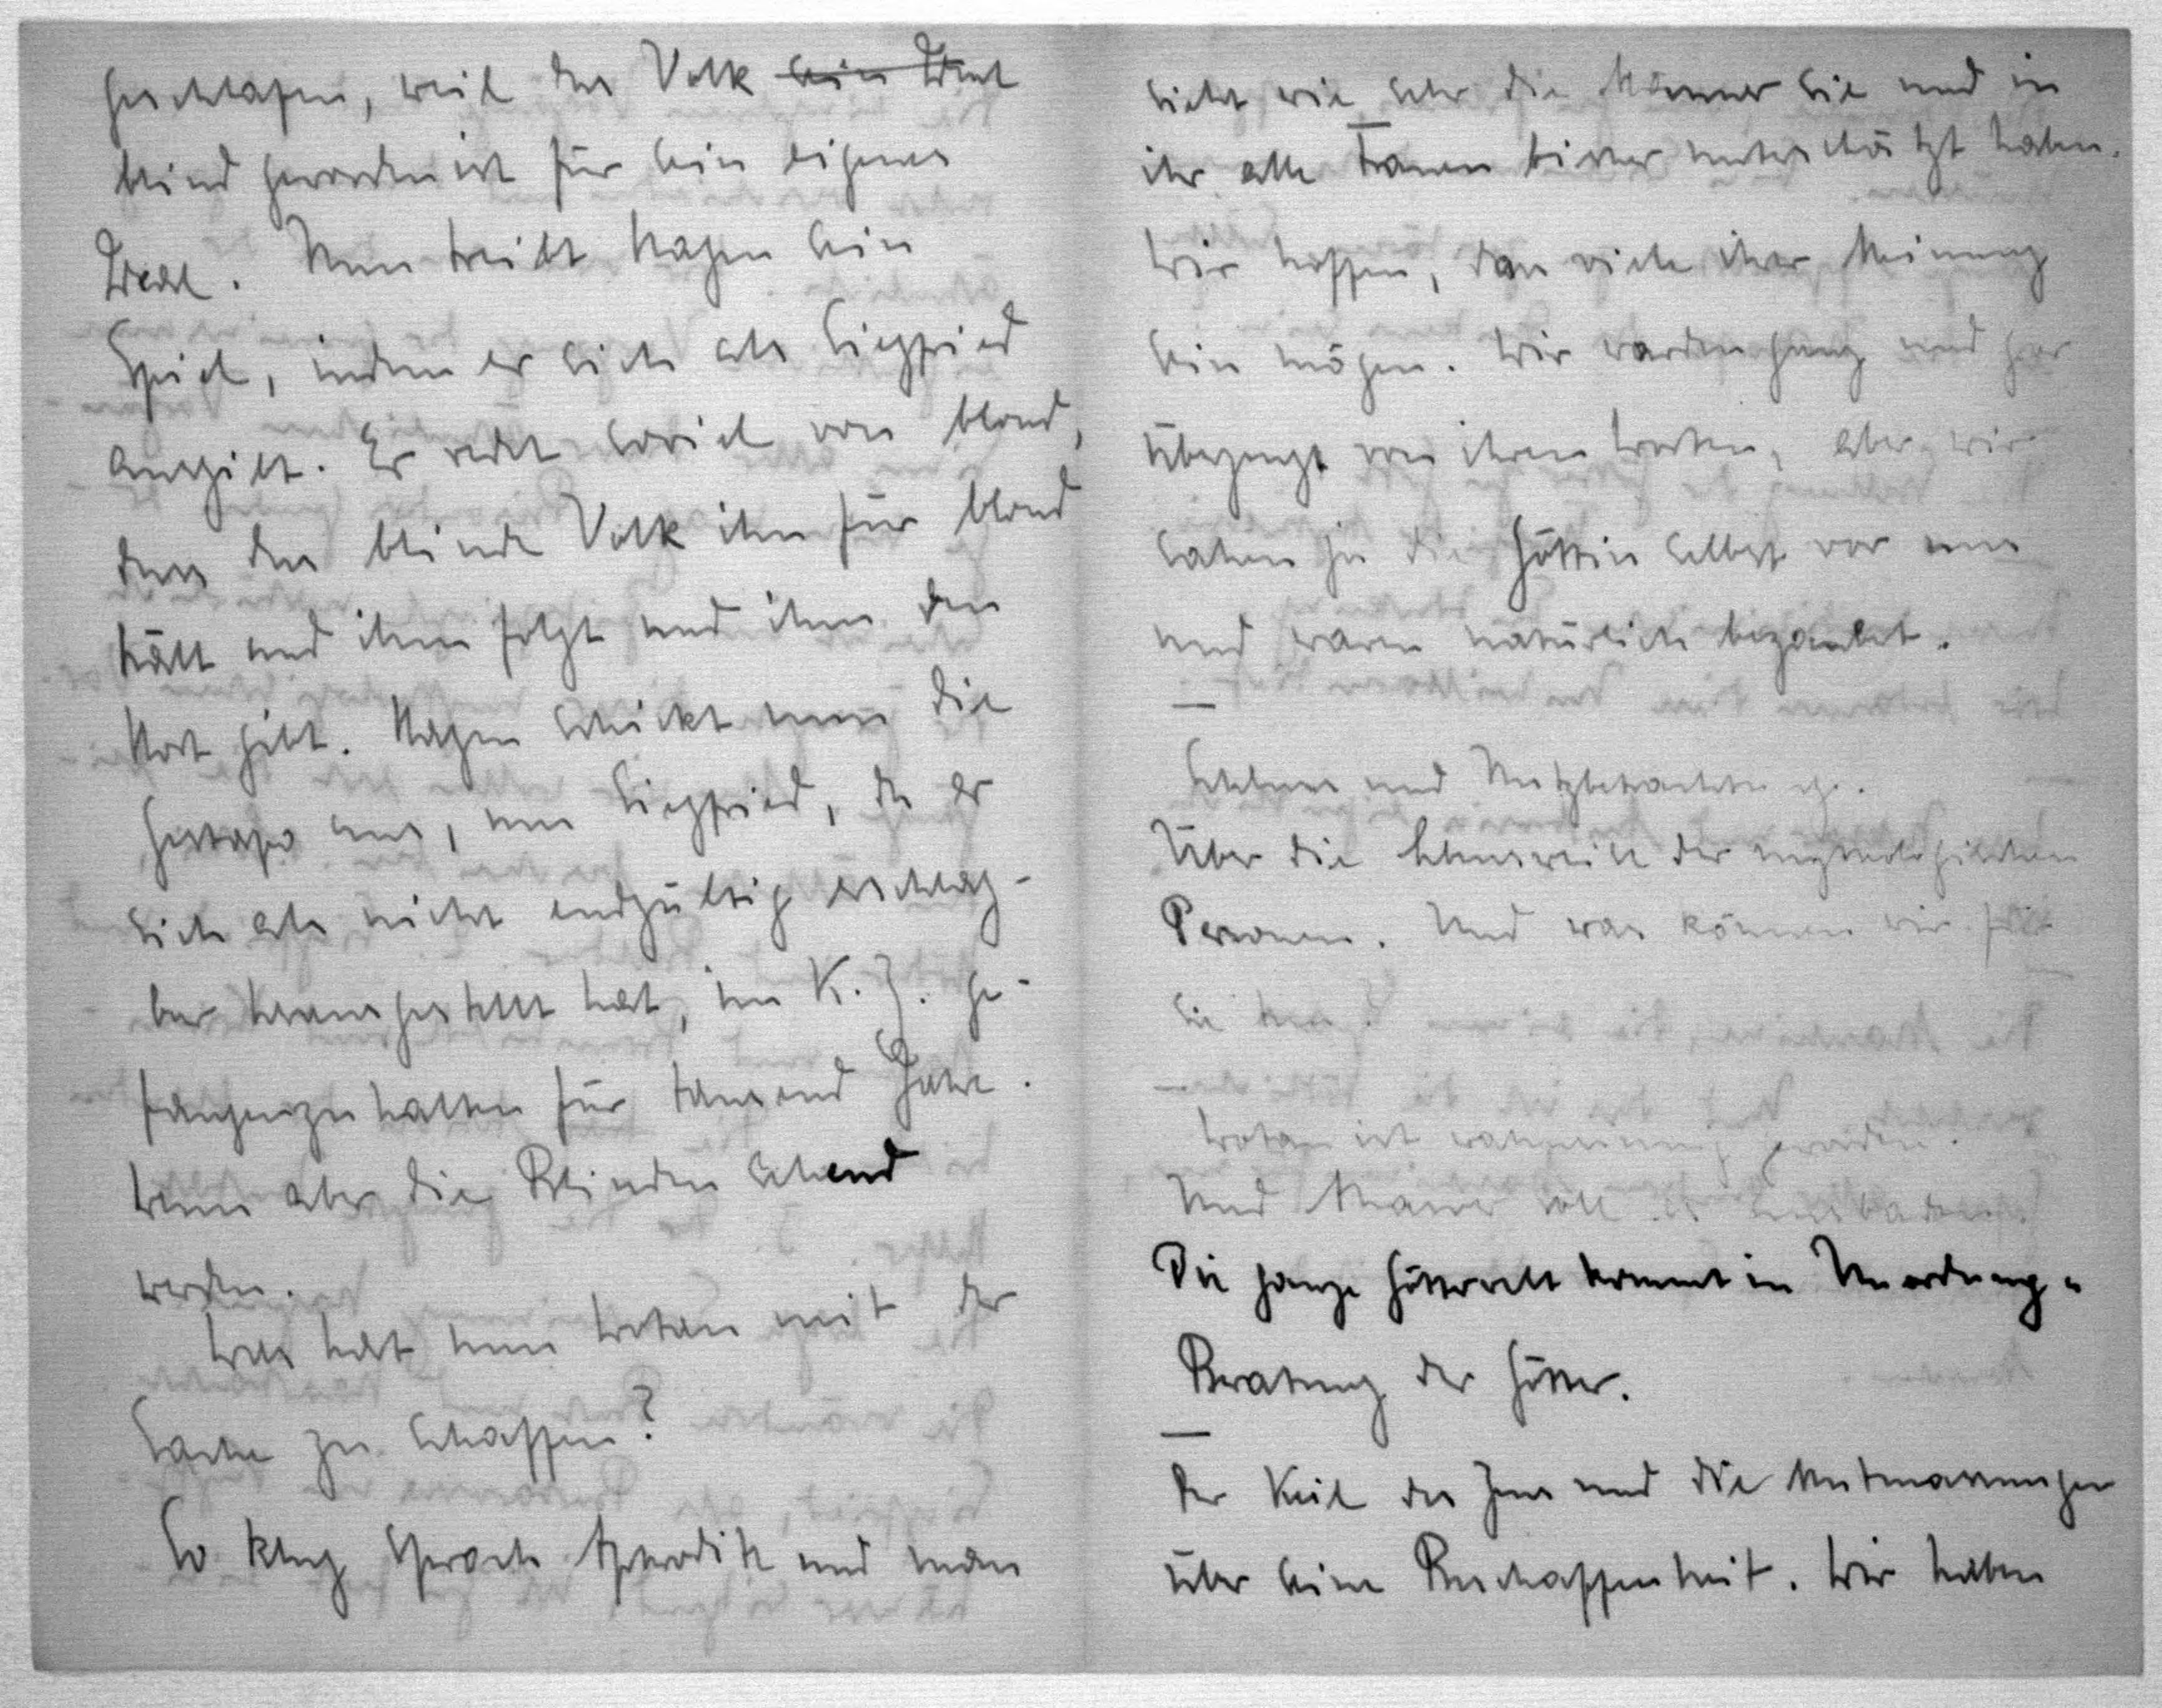 geschlafen, weil das Volk ~~sein Ideal~~
blind geworden ist für sein eigenes
Ideal. Nun treibt Hagen sein
Spiel, indem er sich als Siegfried
ausgibt. Er redet soviel von blond,
dass das blinde Volk ihn für blond
hält und ihm folgt und ihm den
Hort gibt. Hagen schickt nun die
Gestapo aus, um Siegfried, da er
sich als nicht endgültig erschlag-
bar herausgestellt hat, im K.Z. ge-
fangenzuhalten für tausend Jahre.
Wenn aber die Blinden sehend
werden.
Was hat nun Wotan mit der
Sache zu schaffen?
So klug sprach Aphrodite und man
sieht wie sehr die Männer sie und in
ihr alle Frauen bisher unterschätzt haben.
Wir hoffen, dass viele ihrer Meinung
sein mögen. Wir wurden ganz und gar
überzeugt von ihren Worten, aber wir
sahen ja die Göttin selbst vor uns
und waren natürlich bezaubert.
—
Schluss und Nutzbetrachtung.
Über die Lebensweise der mythologischen
Personen. Und was können wir für
sie tun?
—
Wotan ist wahnsinnig geworden.
Und Manes soll es ausbaden.
Die ganze Götterwelt kommt in Unordnung.
Beratung der Götter.
—
Der Keil des Zeus und die Mutmassungen
über seine Beschaffenheit. Wir haben